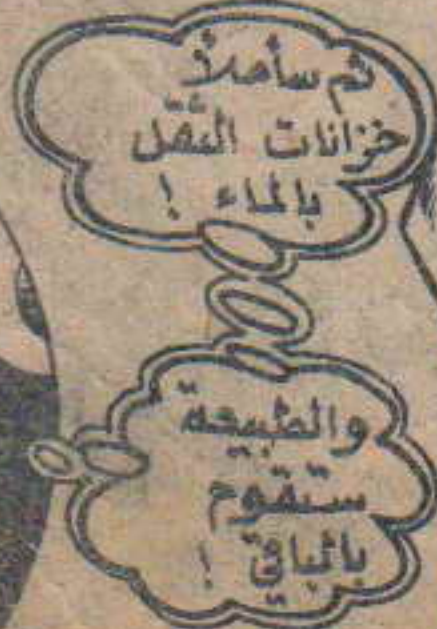 ثم سأملأ
خزانات الثقل
بالماء !
والطبيعة
ستقوم
بالباقي !